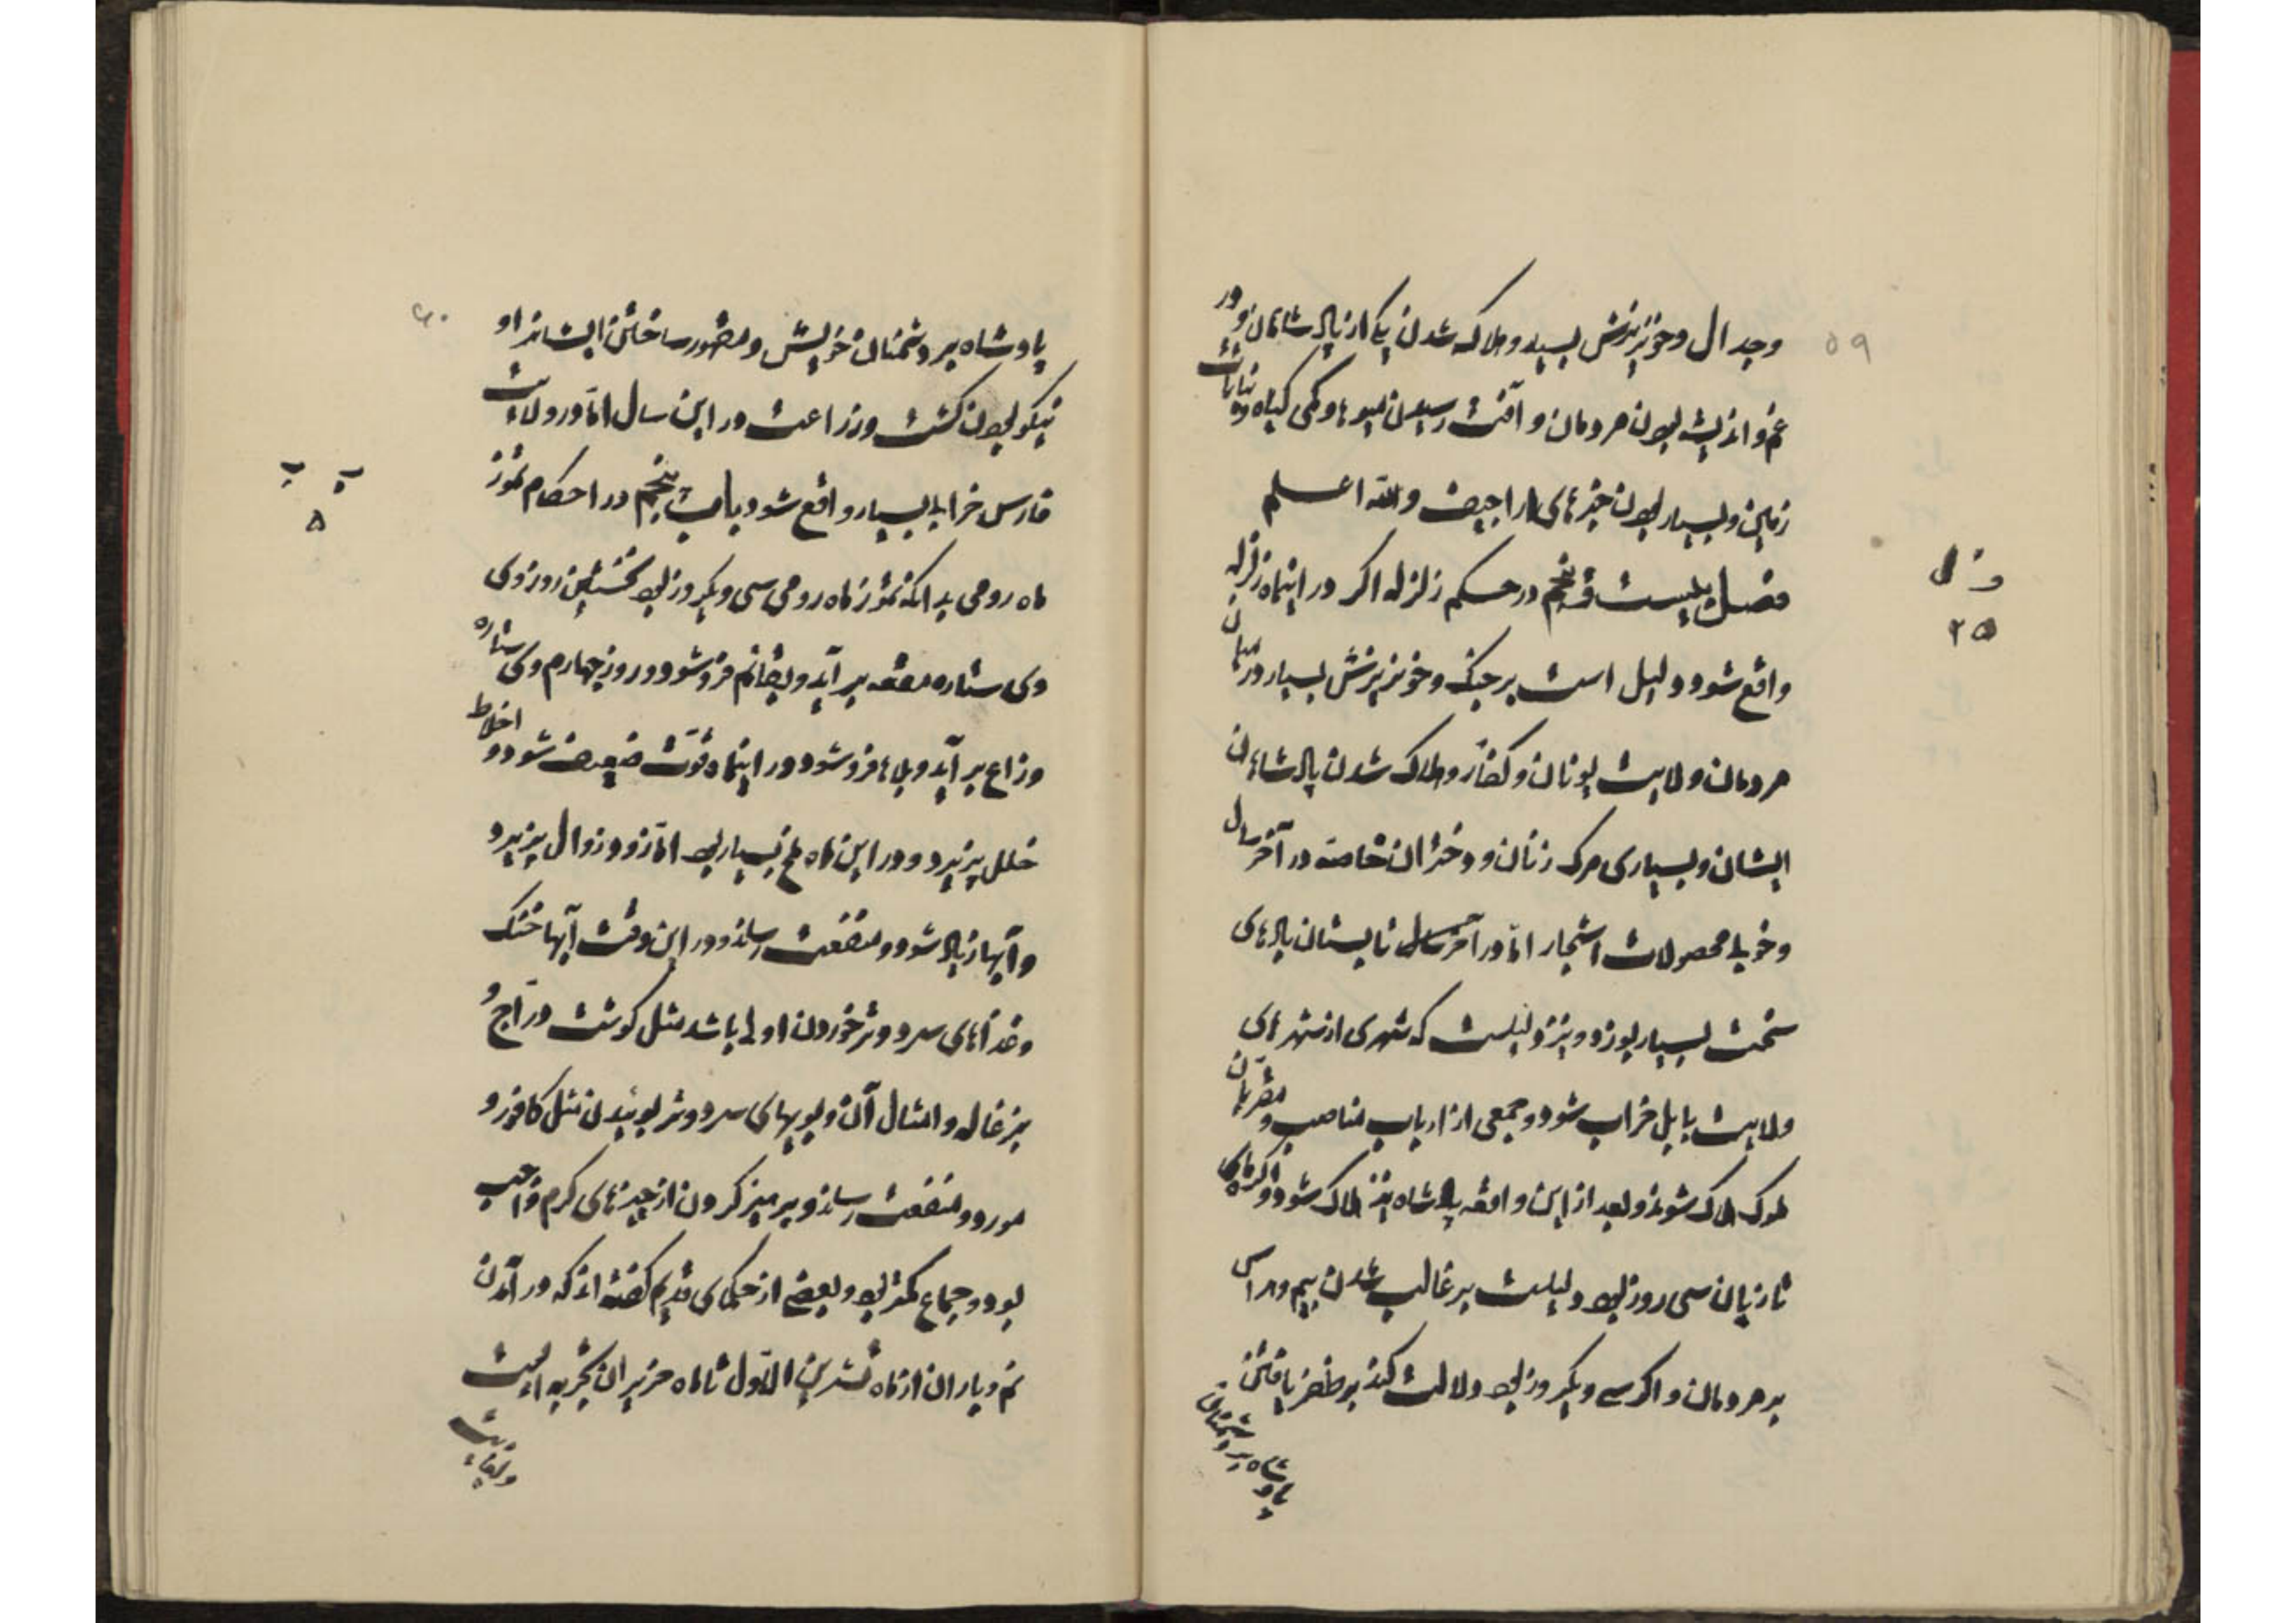 ۵۹
وجدال وخونریزش بسیار وهلاک شدن یکی از پادشاهان ودر
غم واندیشه بودن مردمان وآفت رسیدن میوها وکمی کیاه ونباتات
زمین وبسیار بودن خبرهای اراجیف والله اعلم
فصل بیست وپنجم در حکم زلزله اکر در اینماه زلزله
واقع شود دلیل است بر جنک وخونریزش بسیار در میان
مردمان ولایت یونان وکفار وهلاک شدن پادشاهان
ایشان وبسیاری مرک زنان ودختران خاصه در آخر سال
وخوبی محصولات اشجار اما در آخر سال تابستان بادهای
سخت بسیار بوزد ونیز دلیلست که شهری از شهرهای
ولایت بابل خراب شود وجمعی از ارباب مناصب ومقربان
ملوک هلاک شوند وبعد از این واقعه پادشاه نیز هلاک شود واکر ماه
تازیان سی روز بود دلیلست بر غالب شدن بیم وهراس
بر مردمان واکر سی ویکروز بود دلالت کند بر ظفر یافتن
پادشاه بر دشمنان
فصل
۲۵
۶۰
پادشاه بر دشمنان خویش ومقهور ساختن ایشانرا و
نیکو بودن کشت وزراعت در این سال اما در ولایت
فارس خرابی بسیار واقع شود باب پنجم در احکام تموز
ماه رومی بدانکه تموز ماه رومی سی ویکروز بود نخستین روز وی
وی ستاره هقعه بر آید ونعائم فرو شود ودر روز چهارم وی ستاره
وزاع بر آید وبلده فرو شود ودر اینماه قوت ضعیف شود واخلاط
خلل پذیرد ودر این ماه ملخ بسیار بود اما زود زوال پذیرد
وآبها زیاد شود ومنفعت رساند ودر این وقت آبها خنک
وغذاهای سرد وتر خوردن اولی باشد مثل کوشت دراج و
بزغاله وامثال آن وبویهای سرد وتر بوئیدن مثل کافور و
مورد ومنفعت رساند وپرهیز کردن از چیزهای کرم واجب
بود وجماع کمتر بود وبعضی از حکمای قدیم کفته اند که در آمدن
نم وباران از ماه تشرین الاول تا ماه حزیران تجربه است
باب
۵